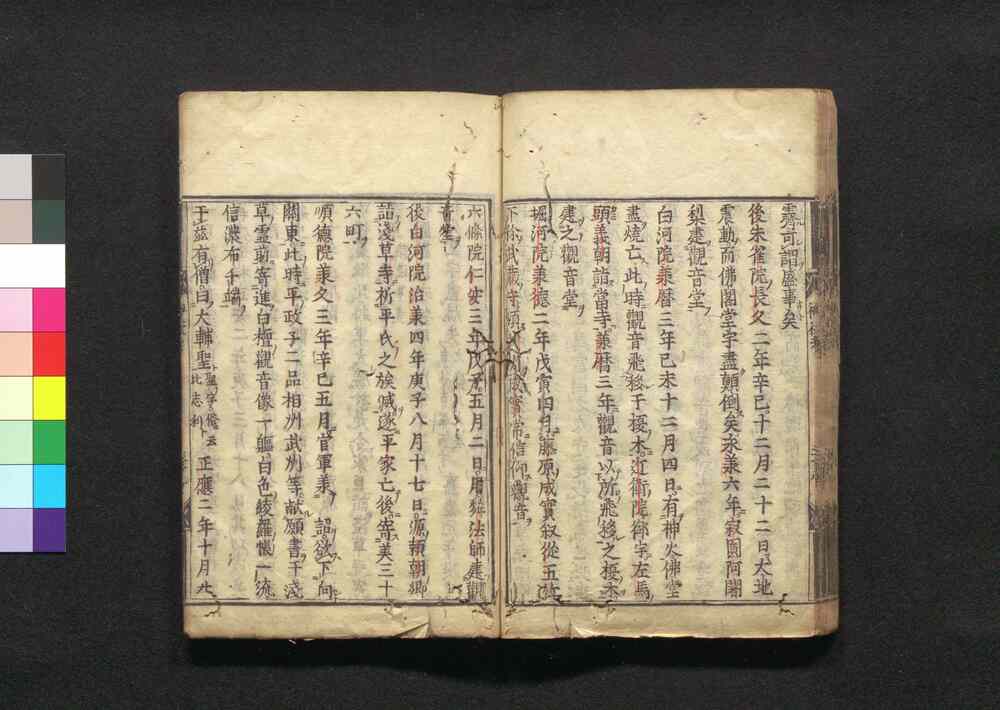 霽可謂盛事矣
後朱雀院長久二年辛巳十二月二十二日大地
震動而佛閣堂宇盡顛倒矣永兼六年寂圓阿闍
梨建觀音堂
白河院兼曆三年己未十二月四日有神火佛堂
盡燒亡此時觀音飛移于榎木近衛院御宇左馬
頭義朝詣當寺兼曆三年觀音以所飛移之榎木
建之觀音堂
堀河院兼德二年戊寅四月藤原成實叙從五位
下任武藏守 成實常信仰觀音
六條院仁安三年戊子五月二日用 法師建觀
音堂
後白河院治兼四年庚子八月十七日源賴朝卿
詣淺草寺祈平氏之族滅遂平家亡後寄美三十
六町
順德院兼久三年辛巳五月官軍兼 詔欲下向
關東此時平政子二品相州武州等献願書于淺
草靈前寄進白檀觀音像一軀白色綾羅帳一流
信濃布千端
于茲有僧曰大輔聖聖字俗云比志利正應二年十月比